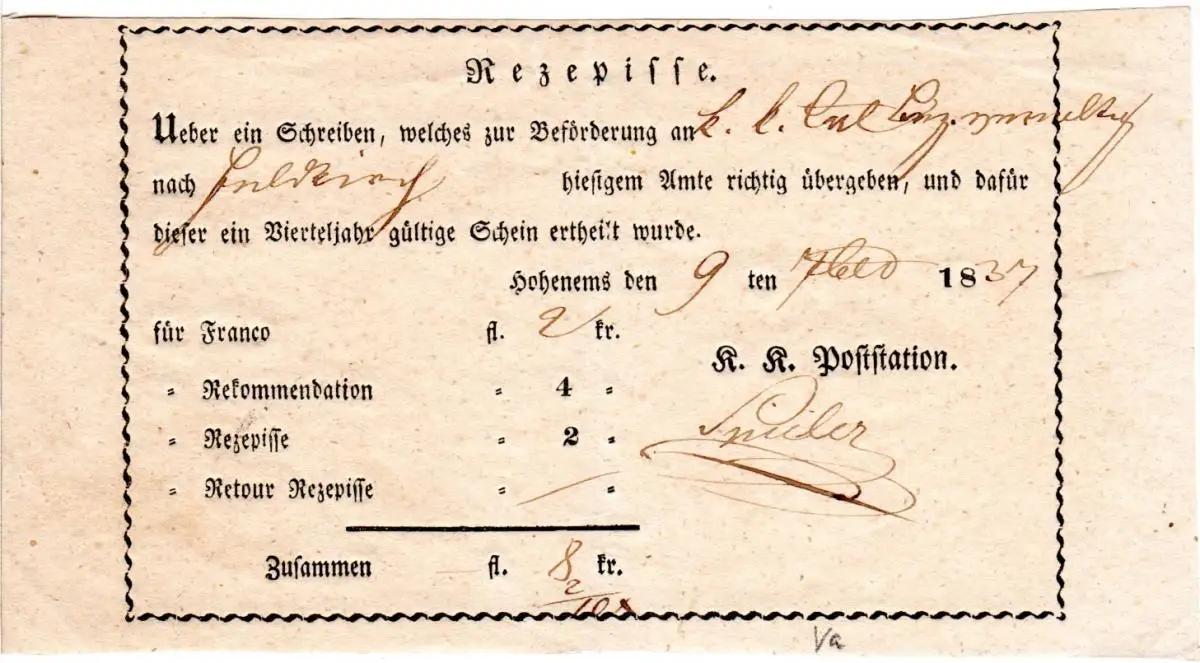 Rezepisse.
Ueber ein Schreiben, welches zur Beförderung an k. k.
nach Feldkirch hiesigem Amte richtig übergeben, und dafür
dieser ein Vierteljahr gültige Schein ertheilt wurde.
Hohenems den 9 ten 1837
für Franco fl. 2 kr.
K. K. Poststation.
" Rekommendation " 4 "
" Rezepisse " 2 "
" Retour Rezepisse " — "
Zusammen — fl. 8 kr.
2
Va